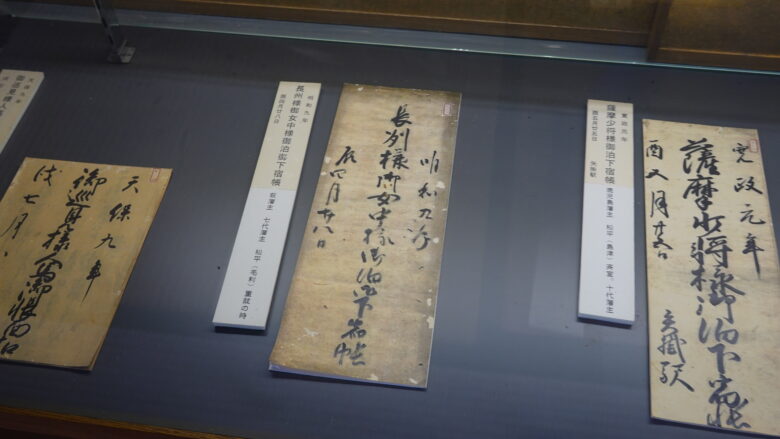 寛政元年
薩摩少将様御泊下宿帳
矢掛駅
寛政元年
薩摩少将様御泊御下宿帳 鹿児島藩主 松平(島津)斉宣、十代藩主
酉五月廿五日 矢掛駅
明和九年
長州様御女中様御泊御下宿帳
辰四月廿八日
明和九年
長州様御女中様御泊御下宿帳 萩藩主 七代藩主 松平(毛利)重就の時
辰四月廿八日
天保九年
御巡見様人馬
戌七月
天保九年
御巡見様人馬